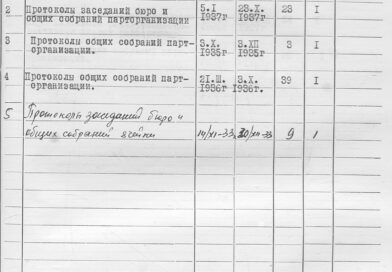 2 Протоколы заседаний бюро и 5.I 23.X. 23 I
общих собраний парторганизации 1937г 1937г
3 Протоколы общих собраний парт- 3.X. 3.XII 3 I
организации. 1935г 1935г
4 Протоколы общих собраний парт- 21.III. 3.X. 39 I
организации. 1936г 1936г.
5 Протоколы заседаний бюро и
общих собраний ячейки 14/XI-33г 30/XII-33 9 1